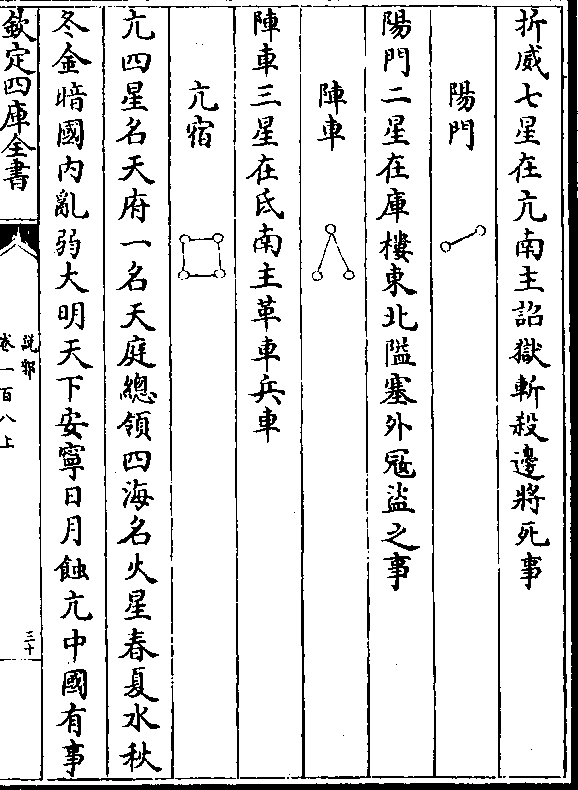 折威七星在亢南主詔獄斬殺邊將死事
陽門
陽門二星在庫樓東北隘塞外冦盜之事
陣車
陣車三星在氐南主革車兵車
亢宿
亢四星名天府一名天庭總領四海名火星春夏水秋
冬金暗國内亂弱大明天下安寧日月蝕亢中國有事
欽定四庫全書
說郛
卷一百八上
三十